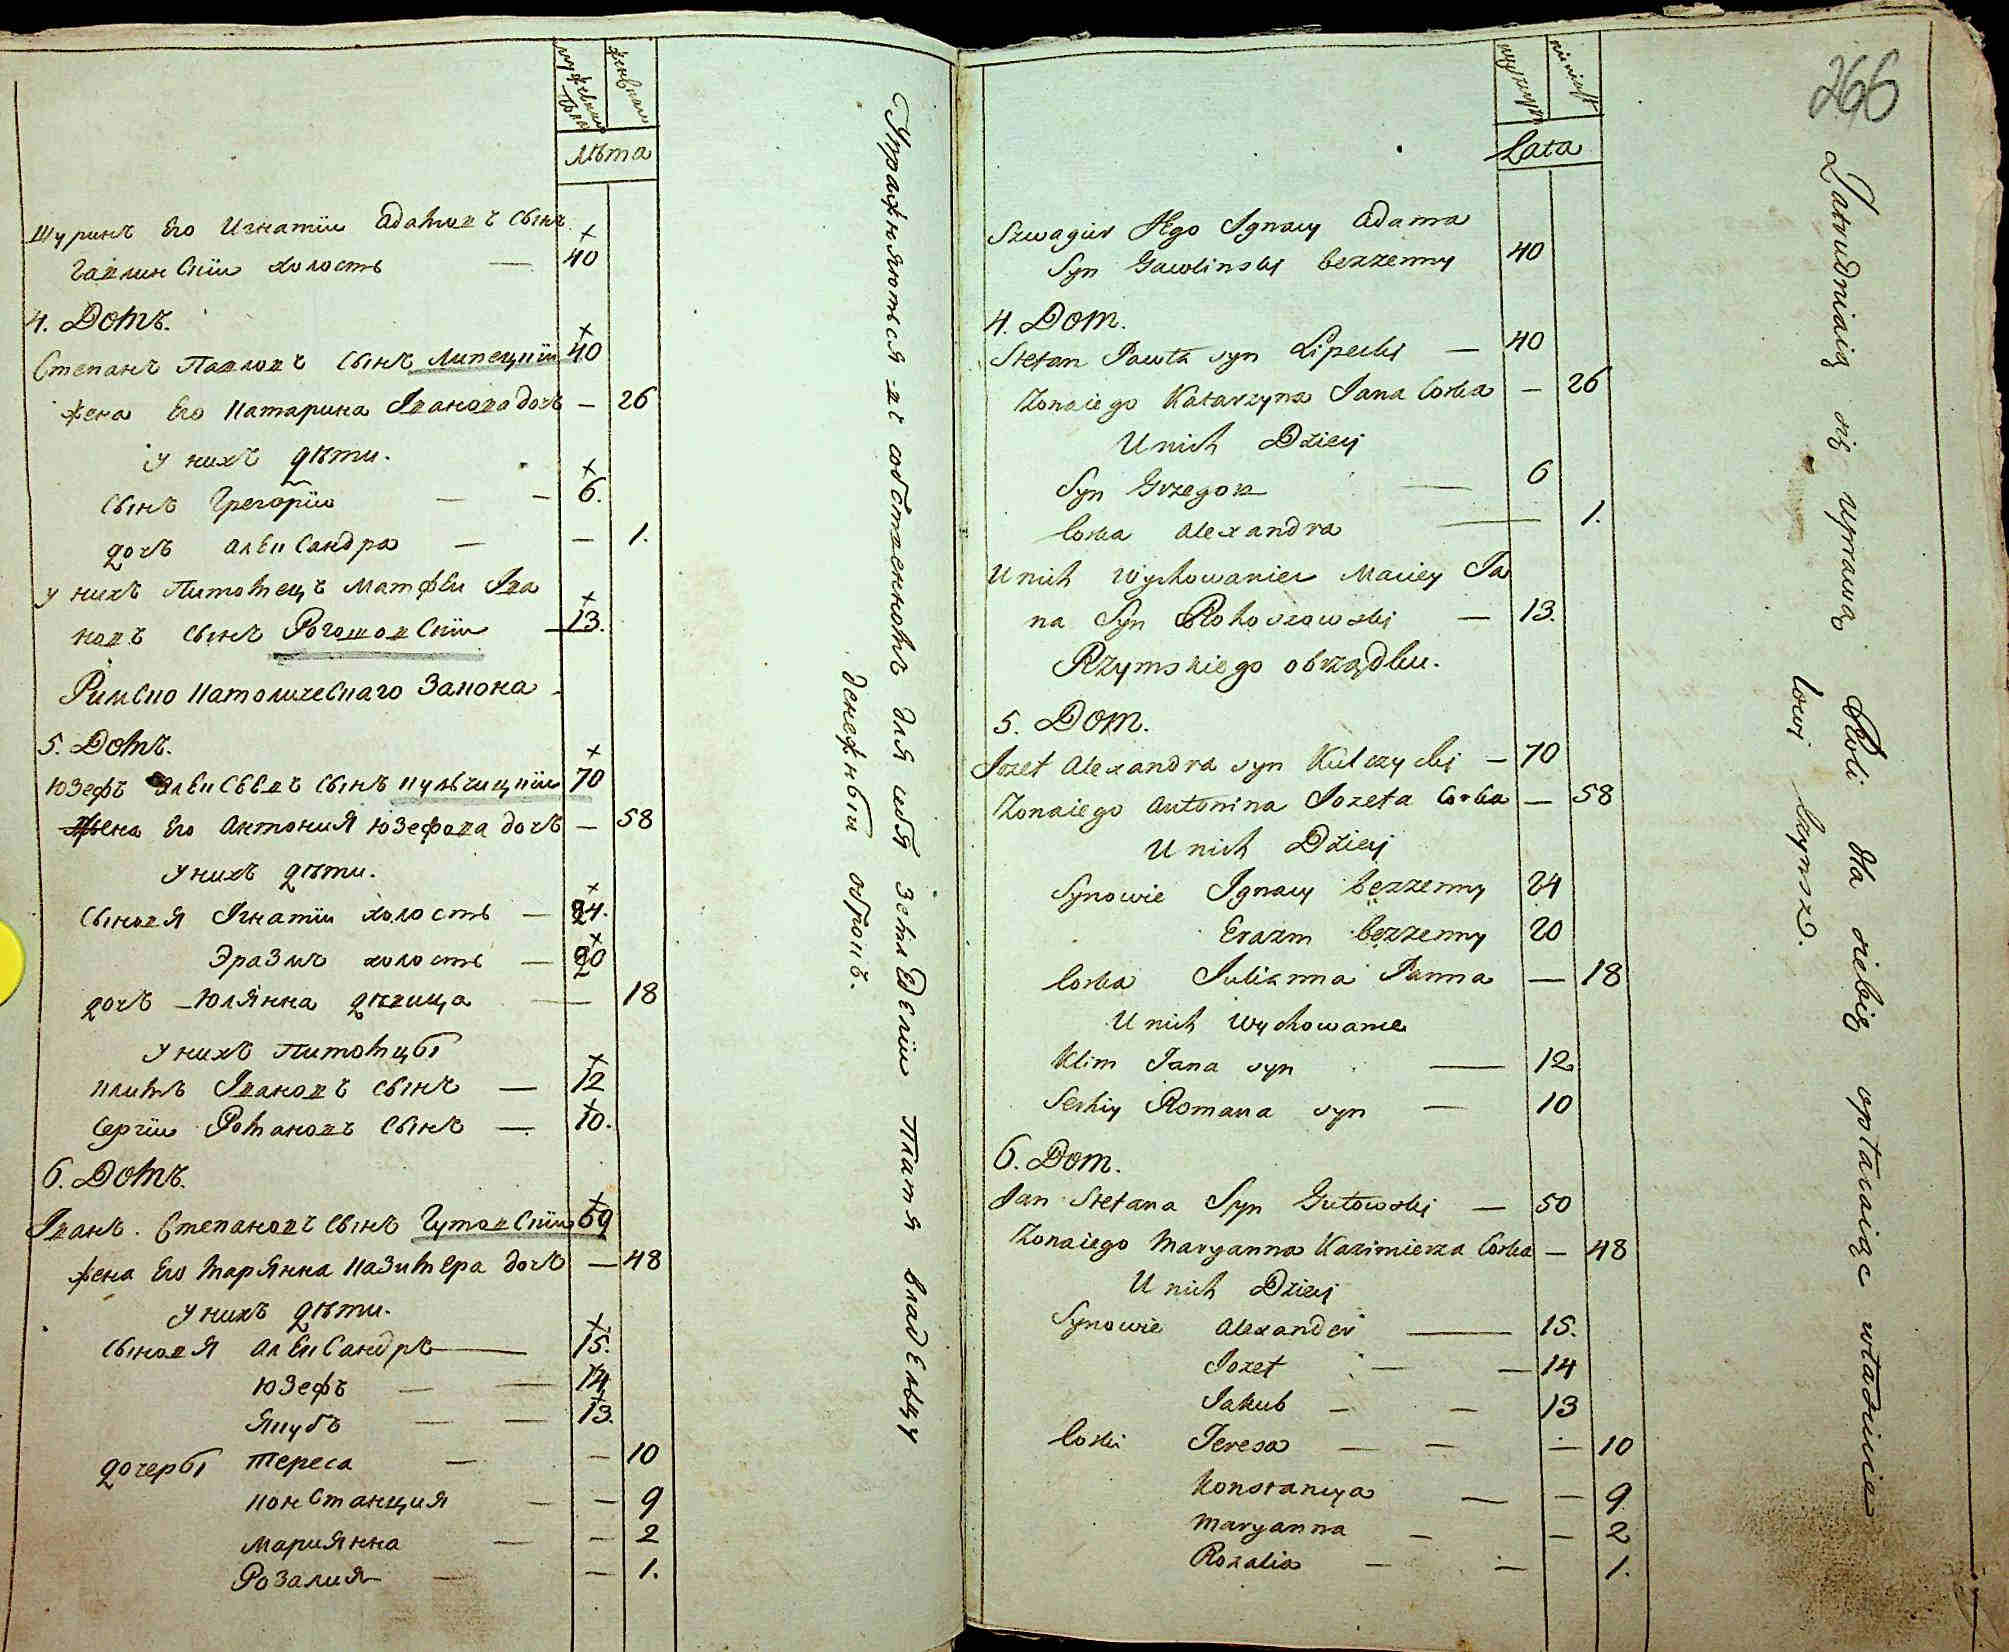 мужеска пола
женска
Лѣта
Шуринъ Его Игнатіи Адамовъ Сынъ
Гавлинскіи холостъ — 40
4. Домъ.
Степанъ Павловъ Сынъ Липецкіи 40
жена Его Катарина Іванова дочь — 26
у нихъ дѣти.
Сынъ Григоріи — — 6.
дочь Александра — — 1.
у нихъ Питомецъ Матфеи Іва
новъ Сынъ Рогошовскіи 13.
Римско Католическаго Закона
5. Домъ.
Юзефъ Алексѣевъ Сынъ Кульчицкіи 70
жена Его Антонія Юзефова дочь — 58
у нихъ дѣти.
Сыновя Ігнатіи холостъ — 24.
Эразмъ холостъ — 20
дочь Юлянна дѣвица — 18
у нихъ Питомцы
Климъ Івановъ Сынъ — 12
Сергіи Романовъ Сынъ — 10.
6. Домъ.
Іванъ Степановъ Сынъ Гутовскіи
жена Его Марянна Казимера дочь — 48
у нихъ дѣти.
Сыновя Александръ — 15.
Юзефъ — — 14
Якубъ — — 13.
дочеры Тереса — — 10
Констанция — — 9
Мариянна — — 2
Розалия — — 1.
Упражняются въ собственномъ для себя земледеліи платя владельцу
денежный оброкъ.
266
Lata
Szwagier Jego Ignacy Adama
Syn Gawlinski bezzenny 40
4. Dom.
Stefan Pawła syn Lipecki — 40
Zonaiego Katarzyna Jana Corka — 26
U nich Dzieci
Syn Grzegorz — 6
Corka Alexandra — 1.
U nich Wychowaniec Maciey Ja
na Syn Rohoszowski — 13.
Rzymskiego obrządku.
5. Dom.
Jozef Alexandra syn Kulczycki — 70
Zonaiego Antonina Jozefa Corka — 58
U nich Dzieci
Synowie Ignacy bezzenny 24
Erazm bezzenny 20
Corka Julianna Panna — 18
U nich Wychowance
Klim Jana syn — 12
Serhiy Romana syn — 10
6. Dom.
Jan Stefana Syn Gutowski — 50
Zonaiego Maryanna Kazimierza Corka — 48
U nich Dzieci
Synowie Alexander — 15.
Jozef — — 14
Jakub — — 13
Corki Teresa — — — 10
Konstancya — — 9
Maryanna — — 2
Rozalia — — 1.
Zatrudniaią się uprawą Roli dla siebie opłacaiąc władzicie
lowi czynsz.